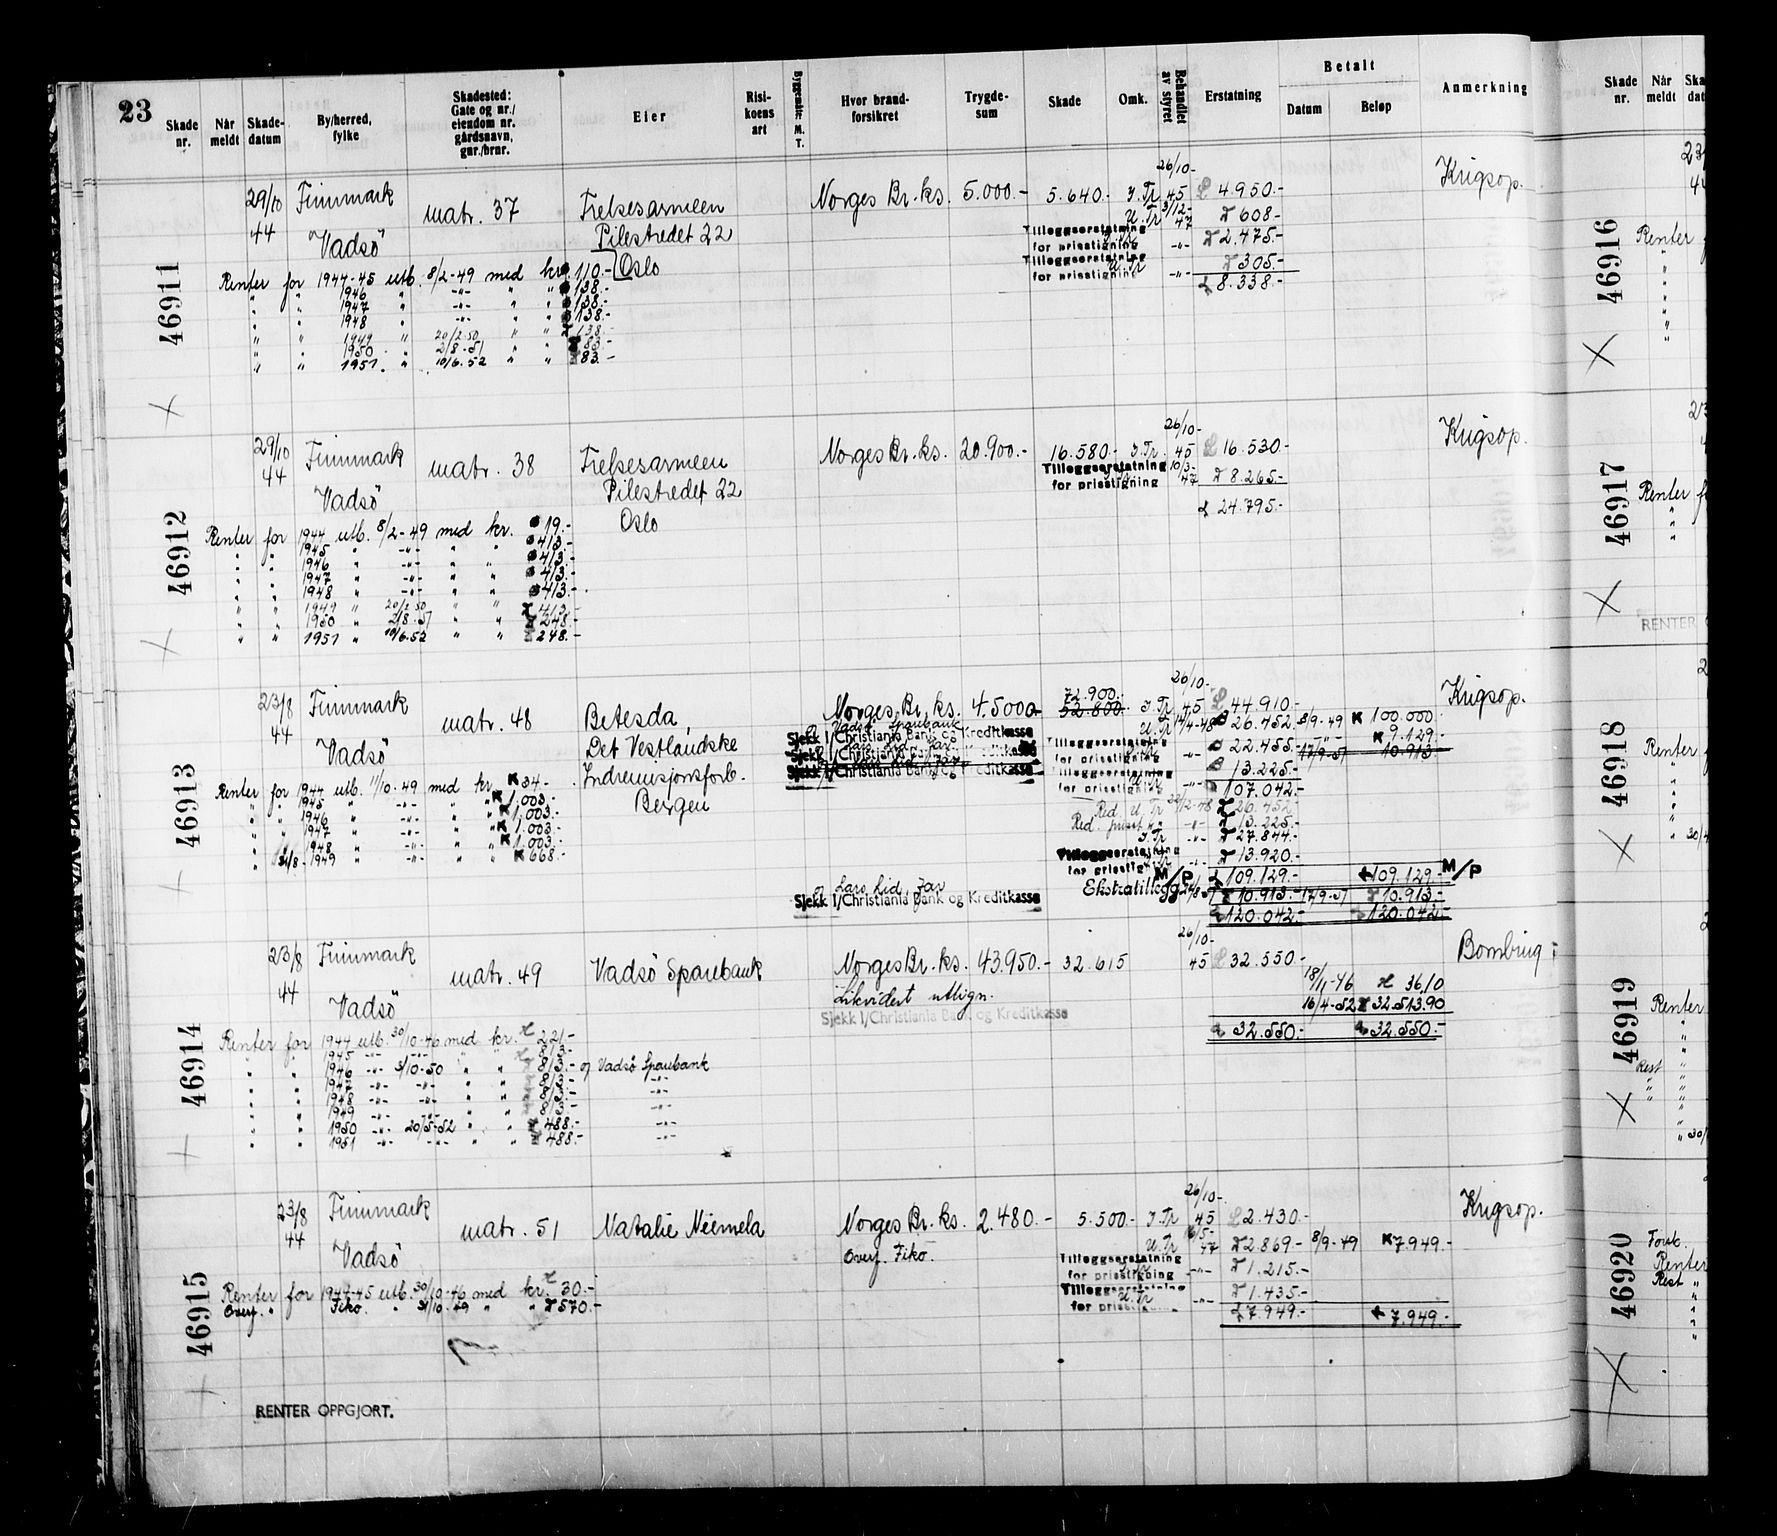 23
Skade nr.
Når meldt
Skadedatum
By/herred, fylke
Skadested: Gate og nr./ eiendom nr. gårdsnavn, gnr./brnr.
Eier
Risikoens art
Byggemåte M. T.
Hvor brandforsikret
Trygdesum
Skade
Omk.
Behandlet av styret
Erstatning
Betalt
Datum
Beløp
Anmerkning
46911
29/10 44 Finnmark Vadsö matr. 37 Frelsesarmeen Norges Br.ks. 5.000.- 5.640.- J.Tr. 26/10-45 4.950.- Krigsop.
Pilestredet 22 U.Tr. 3/12-47 608.-
Oslo Tilleggserstatning for prisstigning J.Tr. -"- 2.475.-
Tilleggserstatning for prisstigning U.Tr. -"- 305.-
8.338.-
Renter for 1944-45 utb. 8/2-49 med kr. 110.-
" " 1946 " -"- " " 138.-
" " 1947 " -"- " " 138.-
" " 1948 " -"- " " 138.-
" " 1949 " 20/2.50 " " 138.-
" " 1950 " 2/8-51 " " 83.-
" " 1951 " 10/6.52 " " 83.-
46912
29/10 44 Finnmark Vadsö matr. 38 Frelsesarmeen Norges Br.ks. 20.900.- 16.580.- J.Tr. 26/10-45 16.530.- Krigsop.
Pilestredet 22 Tilleggserstatning for prisstigning 10/3-47 8.265.-
Oslo 24.795.-
Renter for 1944 utb. 8/2-49 med kr. 19.-
" " 1945 " -"- " " 413.-
" " 1946 " -"- " " 413.-
" " 1947 " -"- " " 413.-
" " 1948 " -"- " " 413.-
" " 1949 " 20/2.50 " " 413.-
" " 1950 " 2/8.51 " " 248.-
" " 1951 " 10/6.52 " " 248.-
46913
23/8 44 Finnmark Vadsö matr. 48 Betesda, Norges Br.ks. 45000 72.900.- 52.800.- J.Tr. 26/10-45 44.910.- Krigsop.
Det Vestlandske Vadsö Sparebank U.Tr. 14/4-48 26.452 8/9-49 K 100.000.-
Indremisjonsforb. Sjekk 1/Christiania Bank og Kreditkasse Tilleggserstatning for prisstigning -"- 22.455.- -"- K 9.129.-
Bergen Sjekk 1/Christiania Bank og Kreditkasse 17/9-51 10.913
Sjekk 1/Christiania Bank og Kreditkasse Tilleggserstatning for prisstigning U.Tr. -"- 13.225.-
107.042.-
Red. U.Tr. 26.452.-
Red. prisst. -"- 13.225.-
J.Tr. -"- 27.844.-
Tilleggserstatning for prisstign. -"- 13.920.-
M/P 109.129.- 109.129.- M/P
Lars Lid, Sjekk 1/Christiania Bank og Kreditkasse Ekstratillegg 10.913.- 17/9-51 10.913.-
120.042.- 120.042.-
Renter for 1944 utb. 11/10-49 med kr. K 34.-
" " 1945 " -"- " " K 1.003.-
" " 1946 " -"- " " K 1.003.-
" " 1947 " -"- " " K 1.003.-
" " 1948 " -"- " " K 1.003.-
" 31/8-1949 " -"- " " K 668.-
46914
23/8 44 Finnmark Vadsö matr. 49 Vadsö Sparebank Norges Br.ks. 43.950.- 32.615 26/10-45 32.550.- Bombing
Likvidert utlign. 18/11-46 36,10
Sjekk 1/Christiania Bank og Kreditkasse 16/4-52 32.513.90
32.550.- 32.550.-
Renter for 1944 utb. 30/10-46 med kr. 221.-
" " 1945 -"- -"- " " 813.-
" " 1946 -"- 5/10-50 " " 813.- Vadsö Sparebank
" " 1947 -"- -"- " " 813.- -"-
" " 1948 -"- -"- " " 813.- -"-
" " 1949 -"- -"- " " 813.- -"-
" " 1950 -"- 20/5-52 " " 488.- -"-
" " 1951 -"- -"- " " 488.- -"-
46915
23/8 44 Finnmark Vadsö matr. 51 Natalie Niemela Norges Br.ks. 2.480.- 5.500.- J.Tr. 26/10-45 2.430.- Krigsop.
Overf. Fiko. U.Tr. 47 2.869.- 8/9-49 K 7.949.-
Tilleggserstatning for prisstigning J.Tr. -"- 1.215.-
Tilleggserstatning for prisstigning U.Tr. -"- 1.435.-
7.949.- 7.949.-
Renter for 1944-45 utb. 30/10-46 med kr. 30.-
Overf. " Fiko. " 31/10.49 " " 570.-
RENTER OPPGJORT.
Skade nr.
Når meldt
46916
Renter
46917
Renter
RENTER
46918
Renter
46919
Renter
Rest
46920
Forsk.
Renter
Rest "